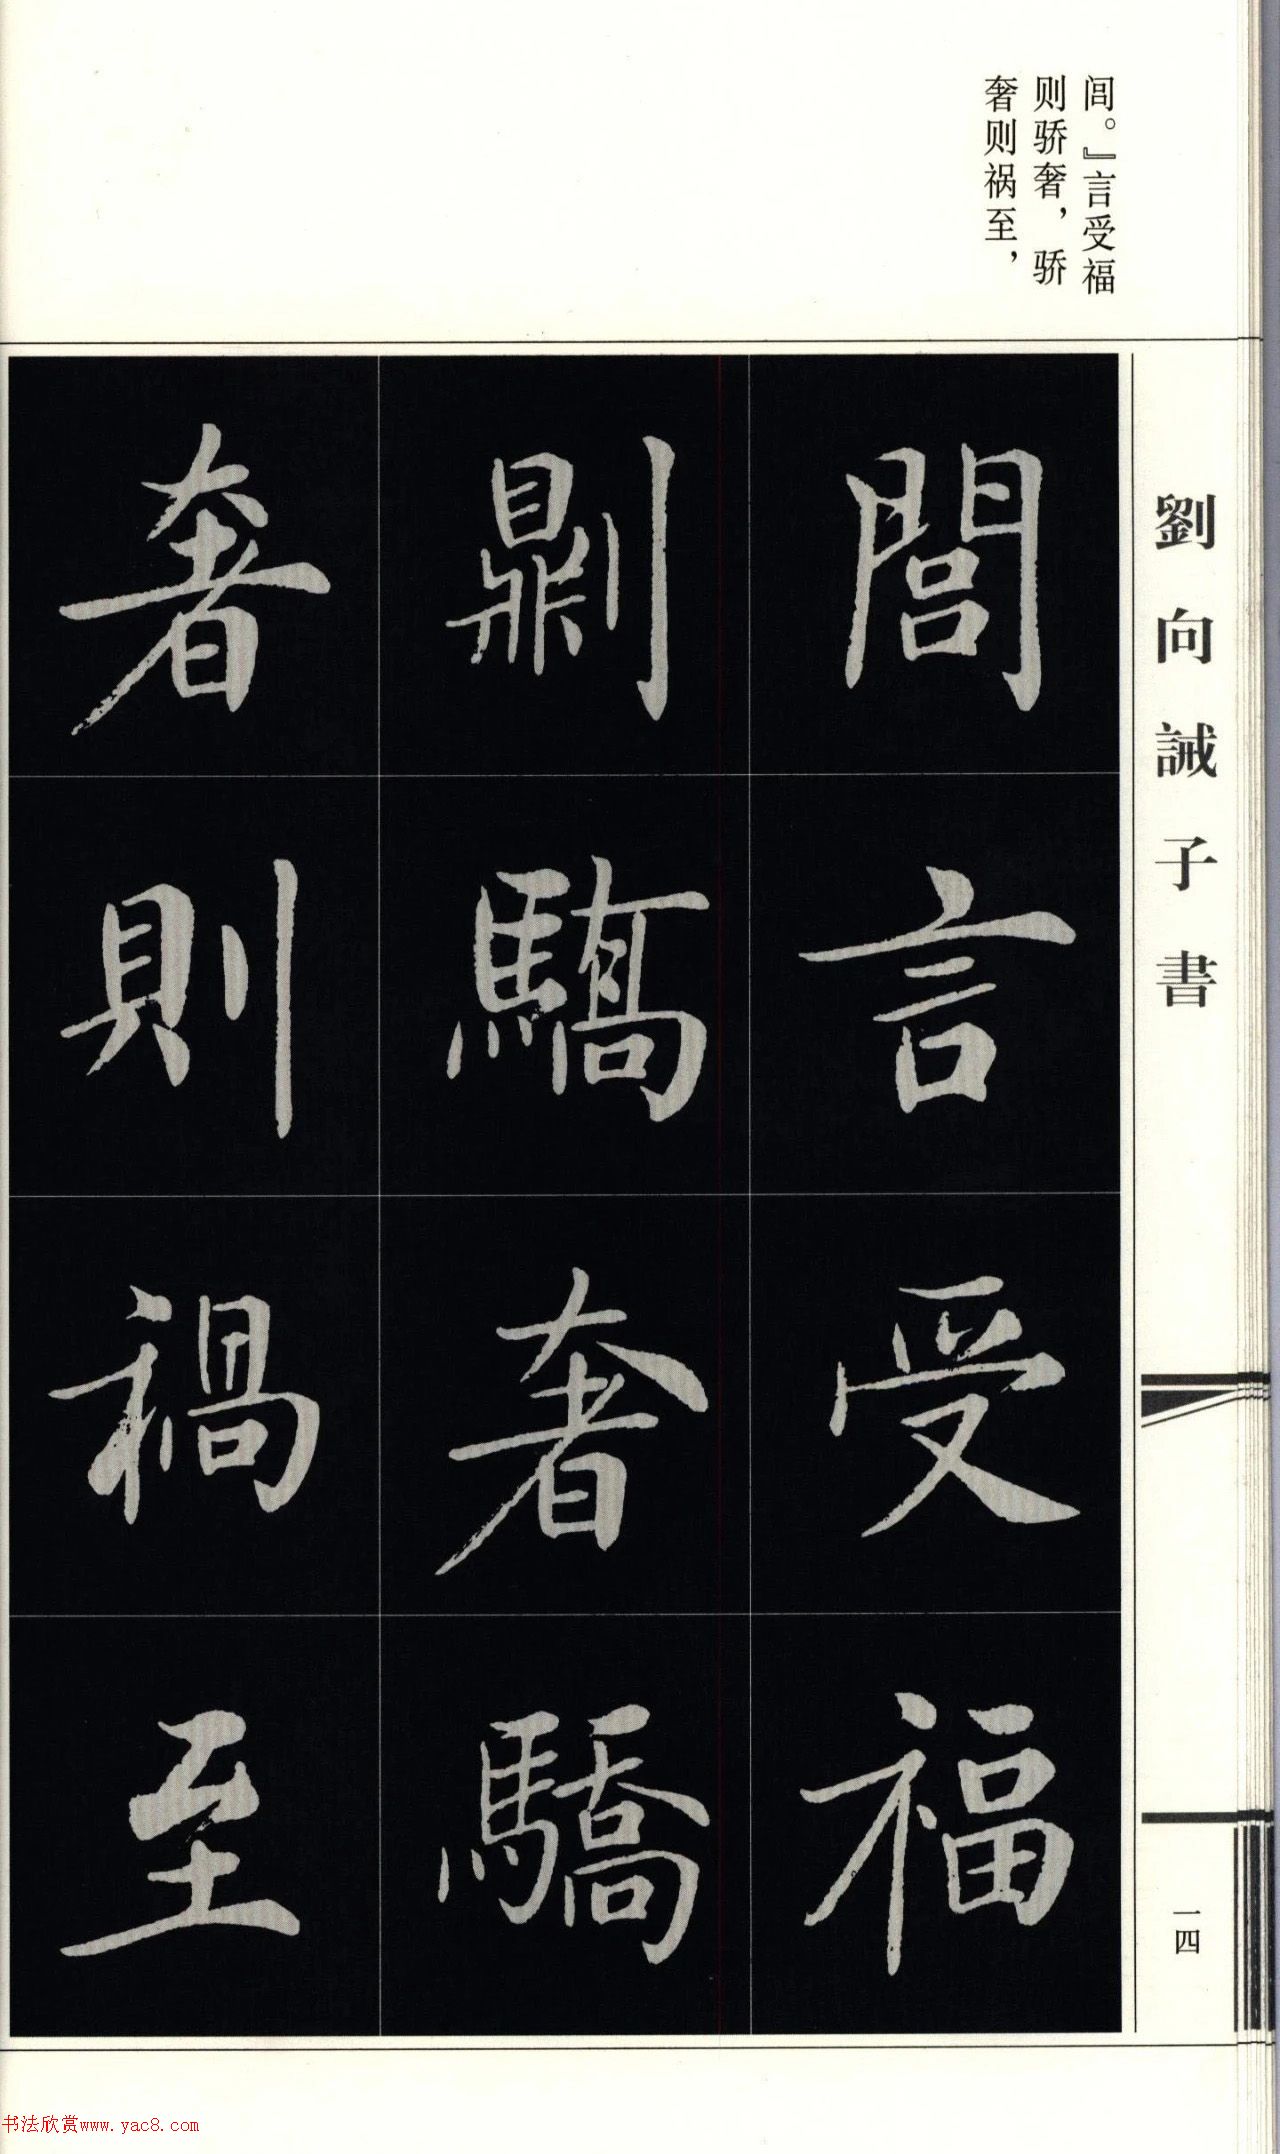 闾。』言受福
则骄奢，骄
奢则祸至，
閭言受福
劓驕奢驕
奢則禍至
劉向誡子書
一四
书法欣赏www.yac8.com